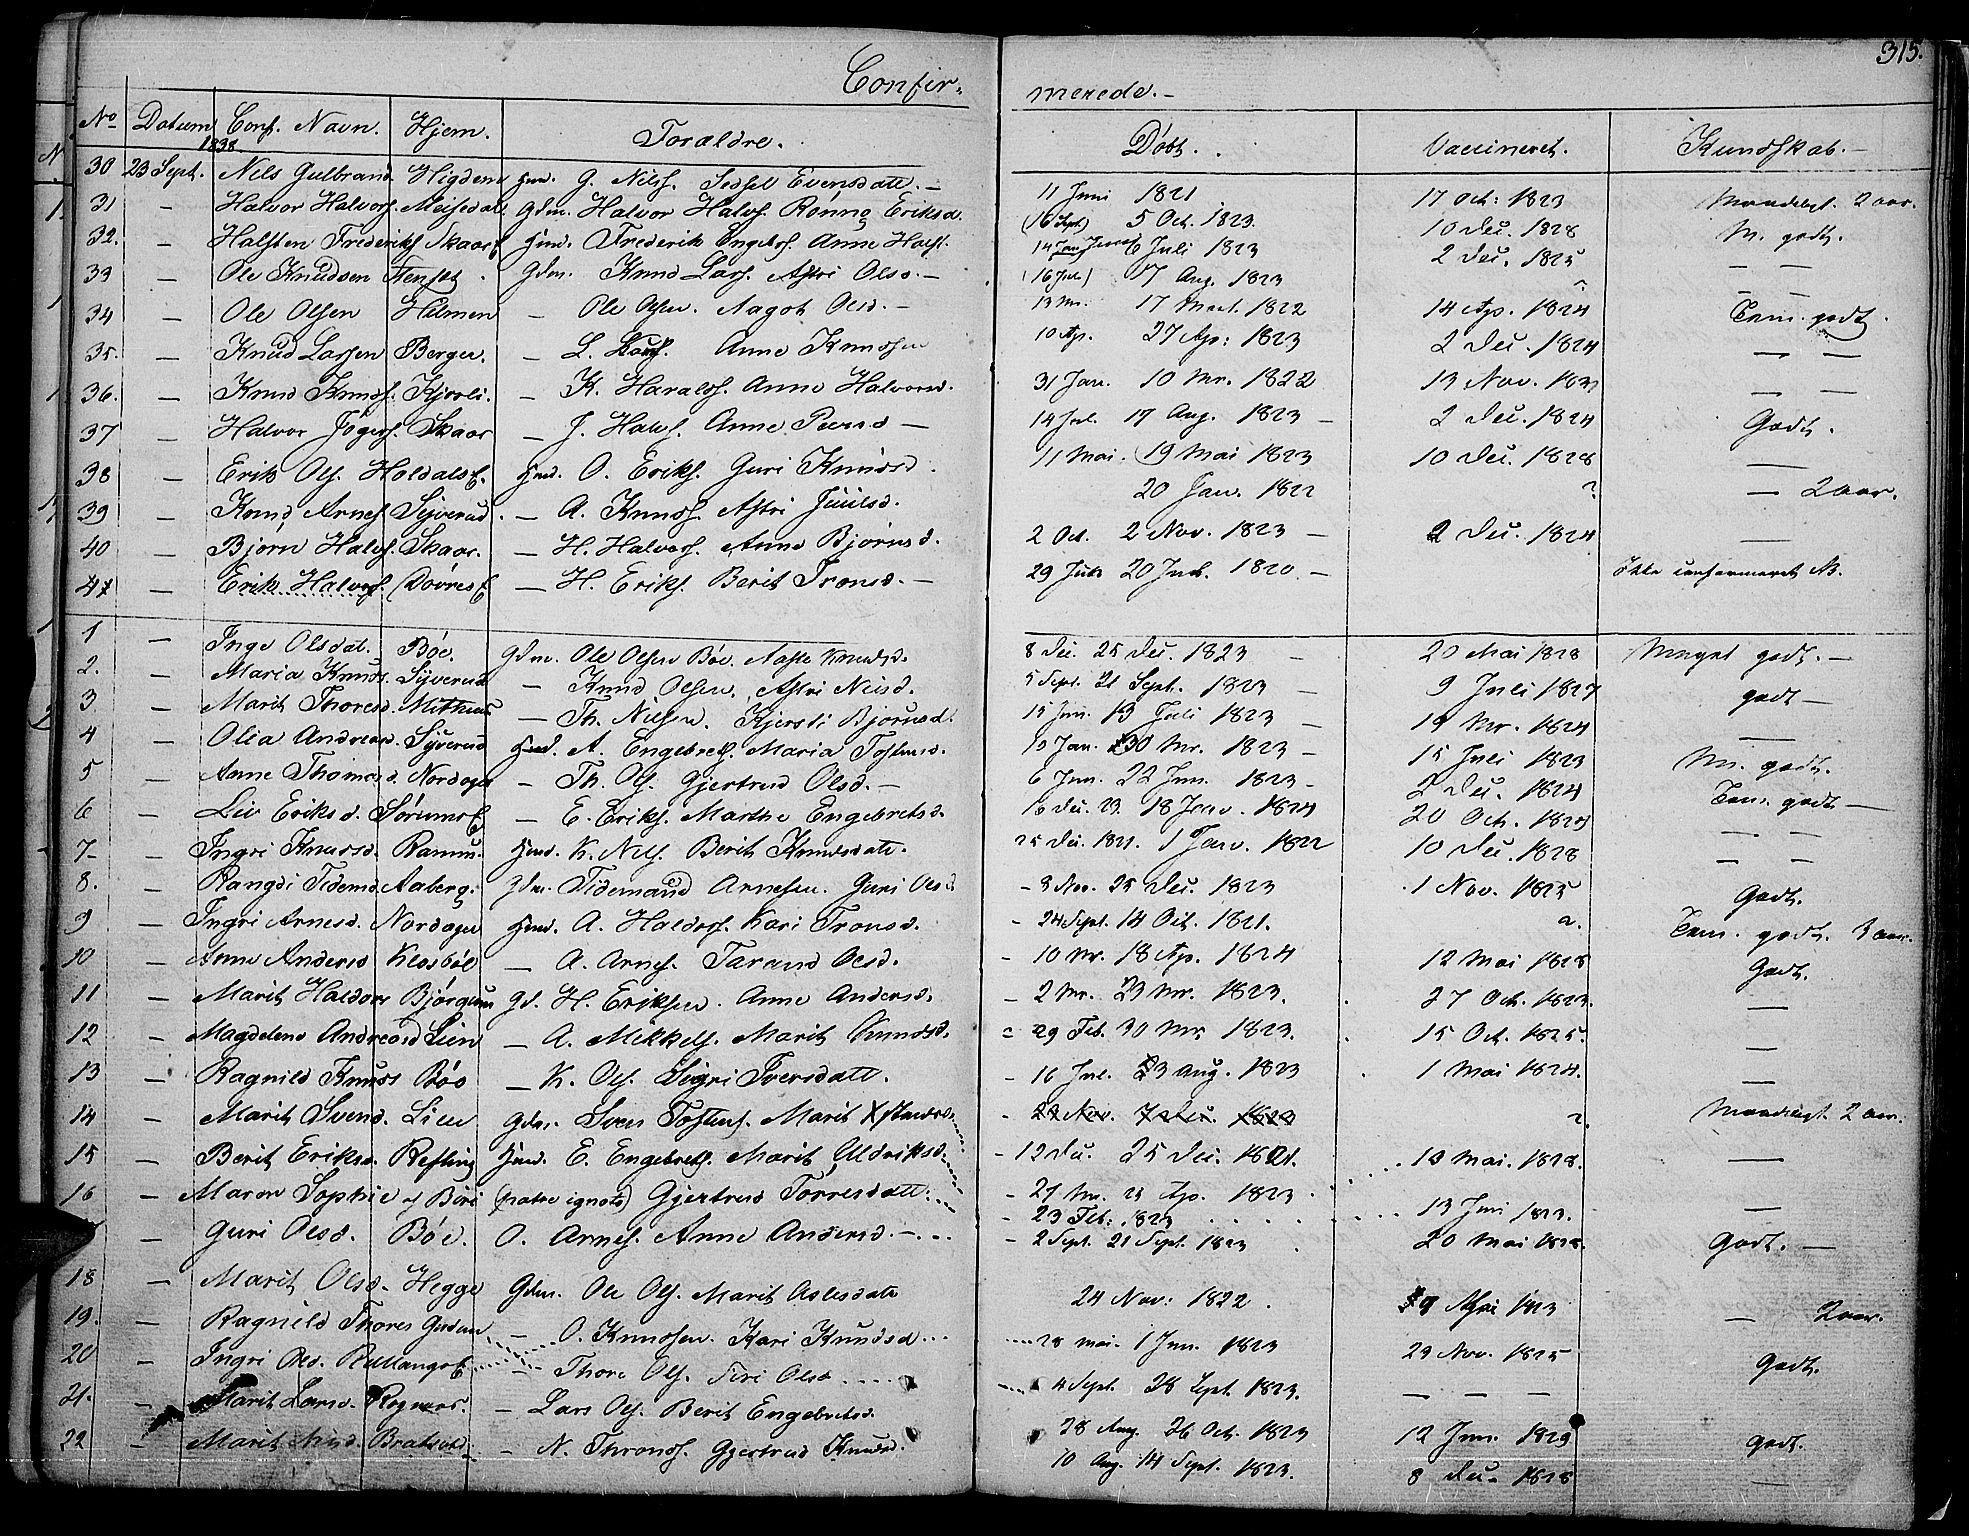 315.
Confir-
merede.-
No Datum Conf. Navn. Hjem. Forældre. Døbt. Vaccineret. Kundskab.-
1838
30 23 Sept. Nils Gulbrand Higdem G. Nilss. Sedsel Evensdatt.- 11 Juni 1821 17 Oct: 1823 Maadeligt. 2 aar.
31 - Halvor Halvors. Gdm. Halvor Halvs. Rønnog Eriksd. 5 Oct. 1823. 10 Dec. 1828 M. godt.
32. - Halsten Frederiks Skaar Frederik Engebs. Anne Halst. 6 Juli 1823 2 Dec. 1825 - -
33 - Ole Knudsen Gdm. Knud Lars. Astri Olsd.- 17 Aug. 1823 - -
34 - Ole Olsen Hilmen - Ole Olsen. Aagot Olsd.- 17 Mart. 1822 14 Ap. 1824 Tem. godt.
35. - Knud Larsen Berger. - L. Anne Knudsen 10 Ap. 27 Ap: 1823 2 Dec. 1824 - -
36. - Knud Knuds. Kjørli. - K. Haralds. Anne Halvorsd. 31 Jan. 10 Mr. 1822 13 Nov. - -
37 - Halvor Skaar - J. Halvs. Anne Peersd - 14 Jul. 17 Aug. 1823 - 2 Dec. 1824 Godt.
38 - Erik Ols. O. Eriks. Guri Knudsd. 11 Mai. 19 Mai 1823 10 Dec. 1828 -
39 - Knud Arnes. Syverud. - A. Knuds. Astri Juulsd. 20 Jan. 1822 ? - 2 aar.
40 - Bjørn Halvs. Skaar. - H. Halvors. Anne Bjørnsd. 2 Oct. 2 Nov. 1823 - 2 Dec. 1824 -
41 - Erik Halvors. - H. Eriks. Berit Tronsd.- 1820.- Ikke confirmeret
1 - Inge Olsdat. Bøe. Gdm. Ole Olsen Bøe. Aaste Knudsd. 8 Dec. 25 Dec. 1823 - 20 Mai 1828 Meget godt.-
2. - Maria Knuds. Syverud - Knud Olsen. Astri Nilsd. 5 Sept. 21 Sept. 1823 - 9 Juli 1827 godt -
3 - Marit Thoresd. - Th. Nilsen. Kjersti Bjørnsd. 15 Jun. 13 Juli 1823 - 19 Mr. 1824 -
4 - Olia Andreasd. Syverud A. Engebrets. Maria Tostensd. 10 Jan. 30 Mr. 1823 - 15 Juli 1823 M. godt.
5 - Anne Thomasd. Nordager - Th. Ols. Gjertrud Olsd.- 6 Jun. 22 Jun. 1823 - 2 Dec. 1824 Tem. godt -
6 - Liv Eriksd. - E. Eriks. Marthe Engebretsd. 16 Dec. 23. 18 Janv. 1824 20 Oct. - -
7- - Ingri Knudsd. K. Nils. Berit Knudsdatt. 25 Dec. 1821. 1 Janv. 1822 10 Dec. 1828 - -
8. - Rangdi Tidemd. Aaberg. Gdm. Tidemand Arnesen. Guri Olsd. - 3 Nov. 25 Dec. 1823 1 Nov. 1825 Godt.
9 - Ingri Arnesd. Nordager A. Haldors. Kari Tronsd. - 24 Sept. 14 Oct. 1821. Tem. godt. 3 aar.
10 - Anne Andersd Klosbøl - A. Arnes. Tarand Olsd. - 10 Mr. 18 Ap. 1824 12 Mai 1828 Godt.
11 - Marit Haldors Bjørgum Gd. H. Eriksen. Anne Andersd. - 2 Mr. 23 Mr. 1823. 27 Oct. 1823. -
12 - Magdelene Andreasd Lien - A. Mikkels. Marit Knudsd. 29 Feb. 30 Mr. 1823. 15 Oct. 1825. -
13 - Ragnild Knuds Bøe - K. Ols. Sigri Iversdatt. - 16 Jul. 23 Aug. 1823 1 Mai 1824. -
14 - Marit Svend. Lien Gdm. Sven Tostens. Marit - 22 Nov. 7 Dec. 1823 ? Maadeligt. 2 aar.
15 - Berit Eriksd. Refling E. Engebrets. Marit Uldriksd. - 12 Dec. 25 Dec. 1821. 10 Mai. 1828. -
16 - Maren Sophie Børi (patre ignoto) Gjertrud Torresdatt. - 27 Mr. 21 Ap. 1823 13 Juni 1823. -
- 23 Feb: 1823
- Guri Olsd. Bøe. O. Arnes. Anne Andersd.- - 2 Sept. 21 Sept. 1823 20 Mai 1828. Godt.-
18 - Marit Olsd. Hegge Gdm. Ole Ols. Marit Aslesdatt 24 Nov: 1822. - 2 aar.
19. - Ragnild Thores - O. Knudsen. Kari Knudsd 28 Mai. 1 Jun. 1823 29 Nov. 1825 Godt.
20 - Ingri Olsd. - Thore Ols. Siri Olsd 4 Sept. 28 Sept. 1823. - - -
21. - Marit Larsd. Rognaas. - Lars Ols. Berit Engebretsd. 28 Aug. 26 Oct. 1823 12 Jun. 1829 Godt.
22 - Marit Nilsd. - N. Throns. Gjertrud Knudsd. 10 Aug. 14 Sept. 1823. 8 Dec. 1828 -